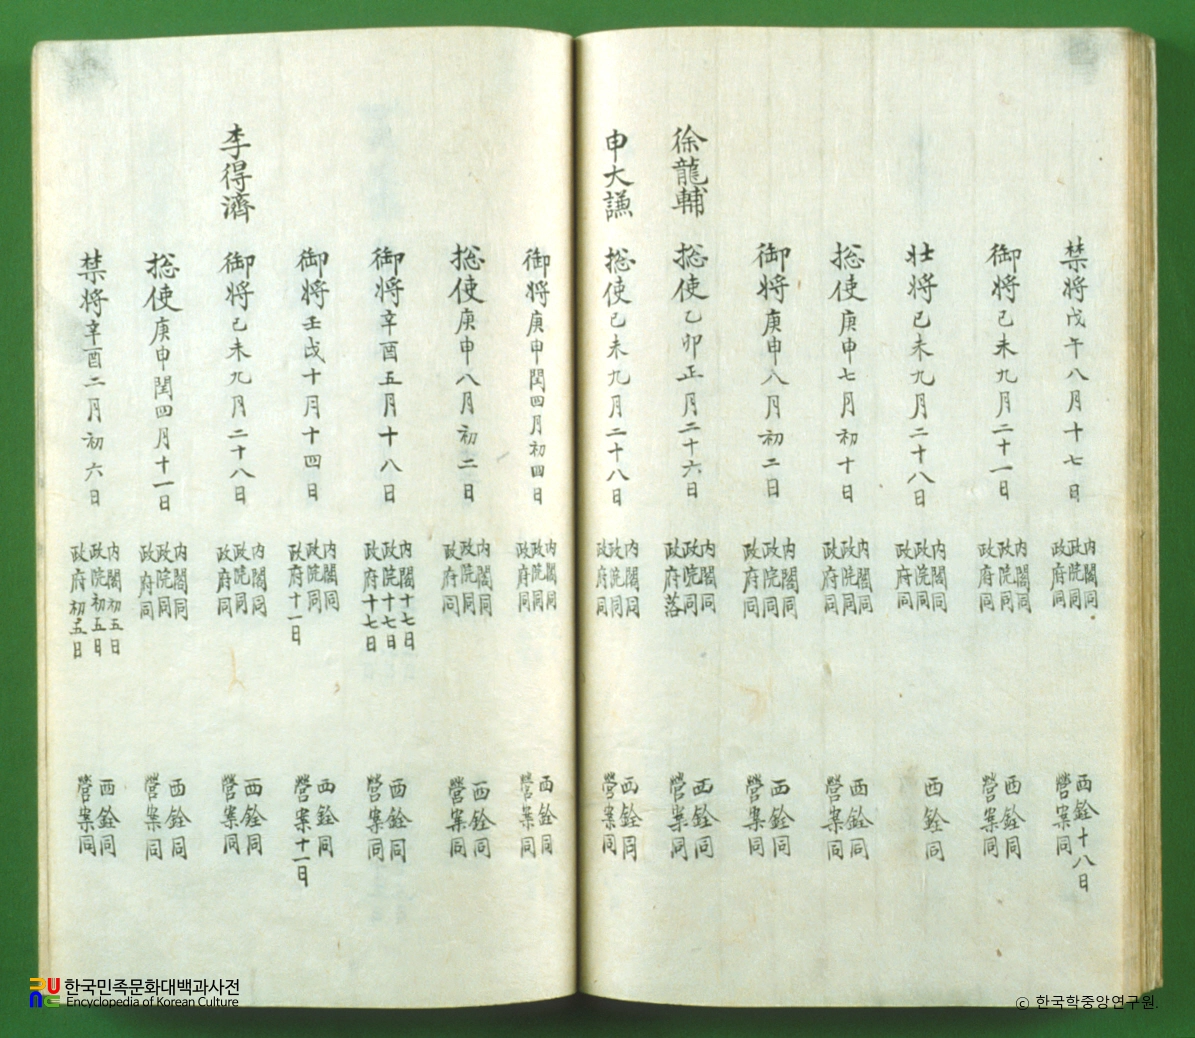 禁將戊午八月十七日
內閣同
政院同
政府同
西銓十八日
營案同
御將己未九月二十一日
內閣同
政院同
政府同
西銓同
營案同
壯將己未九月二十八日
內閣同
政院同
政府同
西銓同
摠使庚申七月初十日
內閣同
政院同
政府同
西銓同
營案同
御將庚申八月初二日
內閣同
政院同
政府同
西銓同
營案同
徐龍輔
摠使乙卯正月二十六日
內閣同
政院同
政府落
西銓同
營案同
申大謙
摠使己未九月二十八日
內閣同
政院同
政府同
西銓同
營案同
御將庚申閏四月初四日
內閣同
政院同
政府同
西銓同
營案同
摠使庚申八月初二日
內閣同
政院同
政府同
西銓同
營案同
御將辛酉五月十八日
內閣十七日
政院十七日
政府十七日
西銓同
營案同
御將壬戌十月十四日
內閣同
政院同
政府十一日
西銓同
營案十一日
李得濟
御將己未九月二十八日
內閣同
政院同
政府同
西銓同
營案同
摠使庚申閏四月十一日
內閣同
政院同
政府同
西銓同
營案同
禁將辛酉二月初六日
內閣初五日
政院初五日
政府初五日
西銓同
營案同
한국민족문화대백과사전
Encyclopedia of Korean Culture
© 한국학중앙연구원.